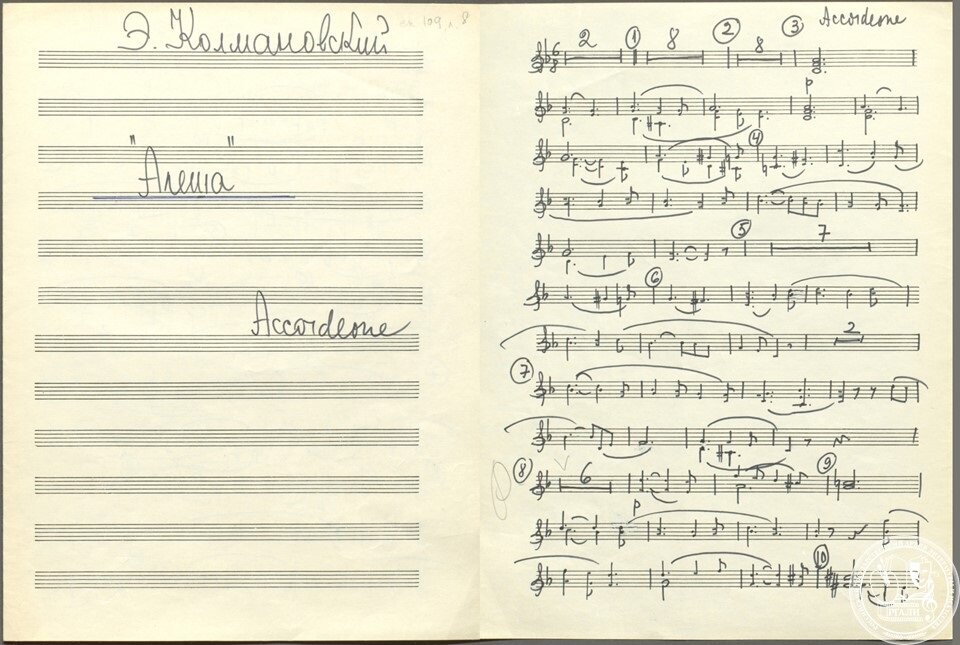 Э. Колмановский
"Алеша"
Accordeone
Accordeone
2 1 8 2 8 3
6
8
p
4
5 7
6
2
7
8 6 9
p
10
p
РГАЛИ